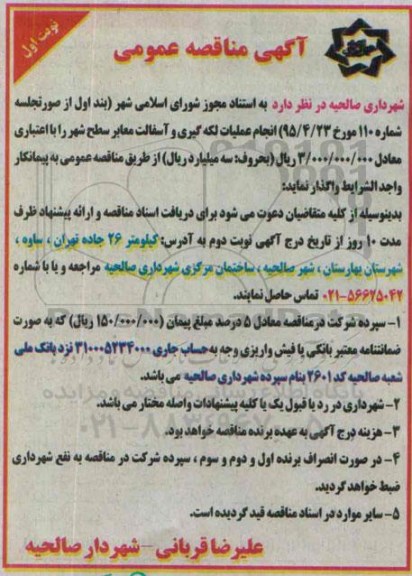 نوبت اول
آگهی مناقصه عمومی
شهرداری صالحیه در نظر دارد به استناد مجوز شورای اسلامی شهر (بند اول از صورتجلسه
شماره ۱۱۰ مورخ ۹۵/۴/۲۳) انجام عملیات لکه گیری و آسفالت معابر سطح شهر را با اعتباری
معادل ۳/۰۰۰/۰۰۰/۰۰۰ ریال (بحروف: سه میلیارد ریال) از طریق مناقصه عمومی به پیمانکار
واجد الشرایط واگذار نماید:
بدینوسیله از کلیه متقاضیان دعوت می شود برای دریافت اسناد مناقصه و ارائه پیشنهاد ظرف
مدت ۱۰ روز از تاریخ درج آگهی نوبت دوم به آدرس: کیلومتر ۲۶ جاده تهران ، ساوه ،
شهرستان بهارستان ، شهر صالحیه ، ساختمان مرکزی شهرداری صالحیه مراجعه و یا با شماره
۰۲۱-۵۶۶۲۵۰۴۲ تماس حاصل نمایند.
۱- سپرده شرکت در مناقصه معادل ۵ درصد مبلغ پیمان (۱۵۰/۰۰۰/۰۰۰ ریال) که به صورت
ضمانتنامه معتبر بانکی یا فیش واریزی وجه به حساب جاری ۳۱۰۰۰۵۲۳۴۰۰۰ نزد بانک ملی
شعبه صالحیه کد ۲۶۰۱ بنام سپرده شهرداری صالحیه می باشد.
۲- شهرداری در رد یا قبول یک یا کلیه پیشنهادات واصله مختار می باشد.
۳- هزینه درج آگهی به عهده برنده مناقصه خواهد بود.
۴- در صورت انصراف برنده اول و دوم و سوم ، سپرده شرکت در مناقصه به نفع شهرداری
ضبط خواهد گردید.
۵- سایر موارد در اسناد مناقصه قید گردیده است.
علیرضا قربانی - شهردار صالحیه